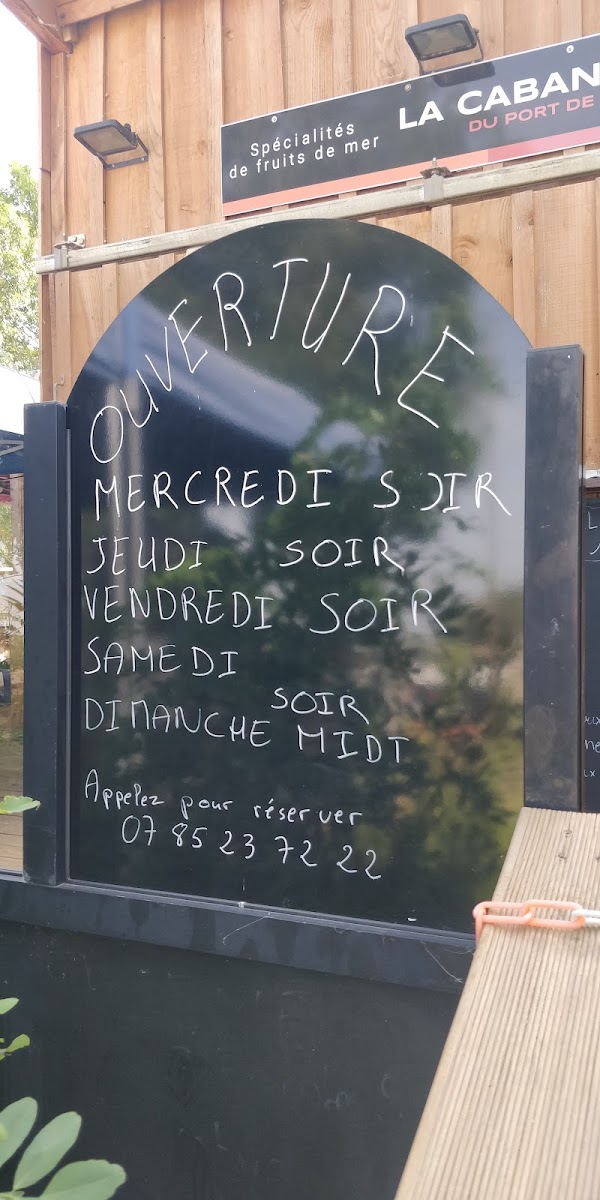 Spécialités
de fruits de mer
LA CABAN
DU PORT DE
OUVERTURE
MERCREDI SOIR
JEUDI SOIR
VENDREDI SOIR
SAMEDI SOIR
DIMANCHE MIDI
Appelez pour réserver
07 85 23 72 22